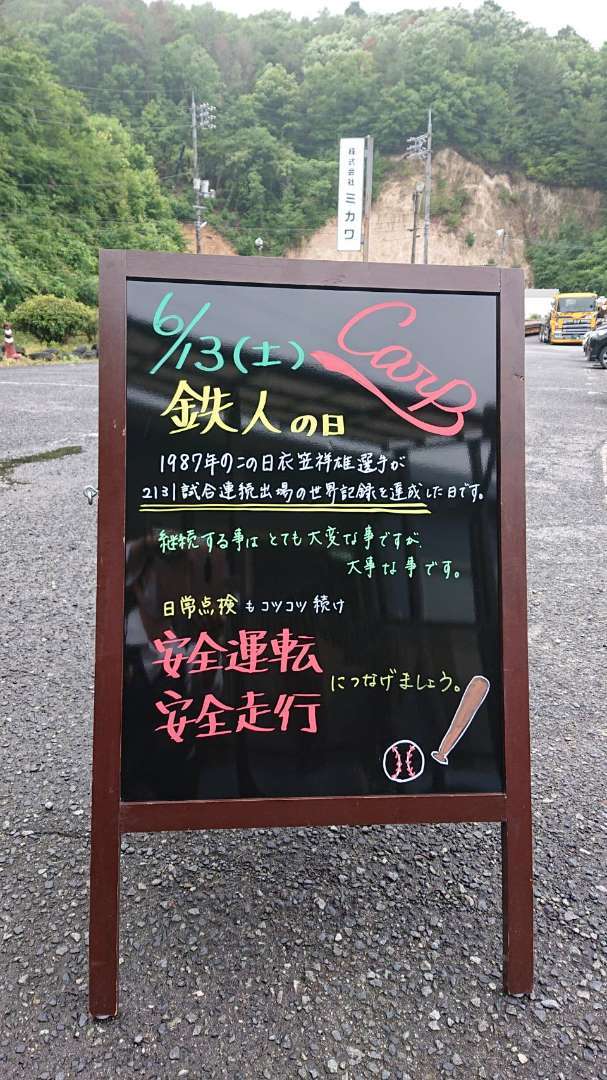 株式会社ミカワ
6/13(土)
Carp
鉄人の日
1987年のこの日衣笠祥雄選手が
2131試合連続出場の世界記録を達成した日です。
継続する事はとても大変な事ですが、
大事な事です。
日常点検もコツコツ続け
安全運転
安全走行
につなげましょう。